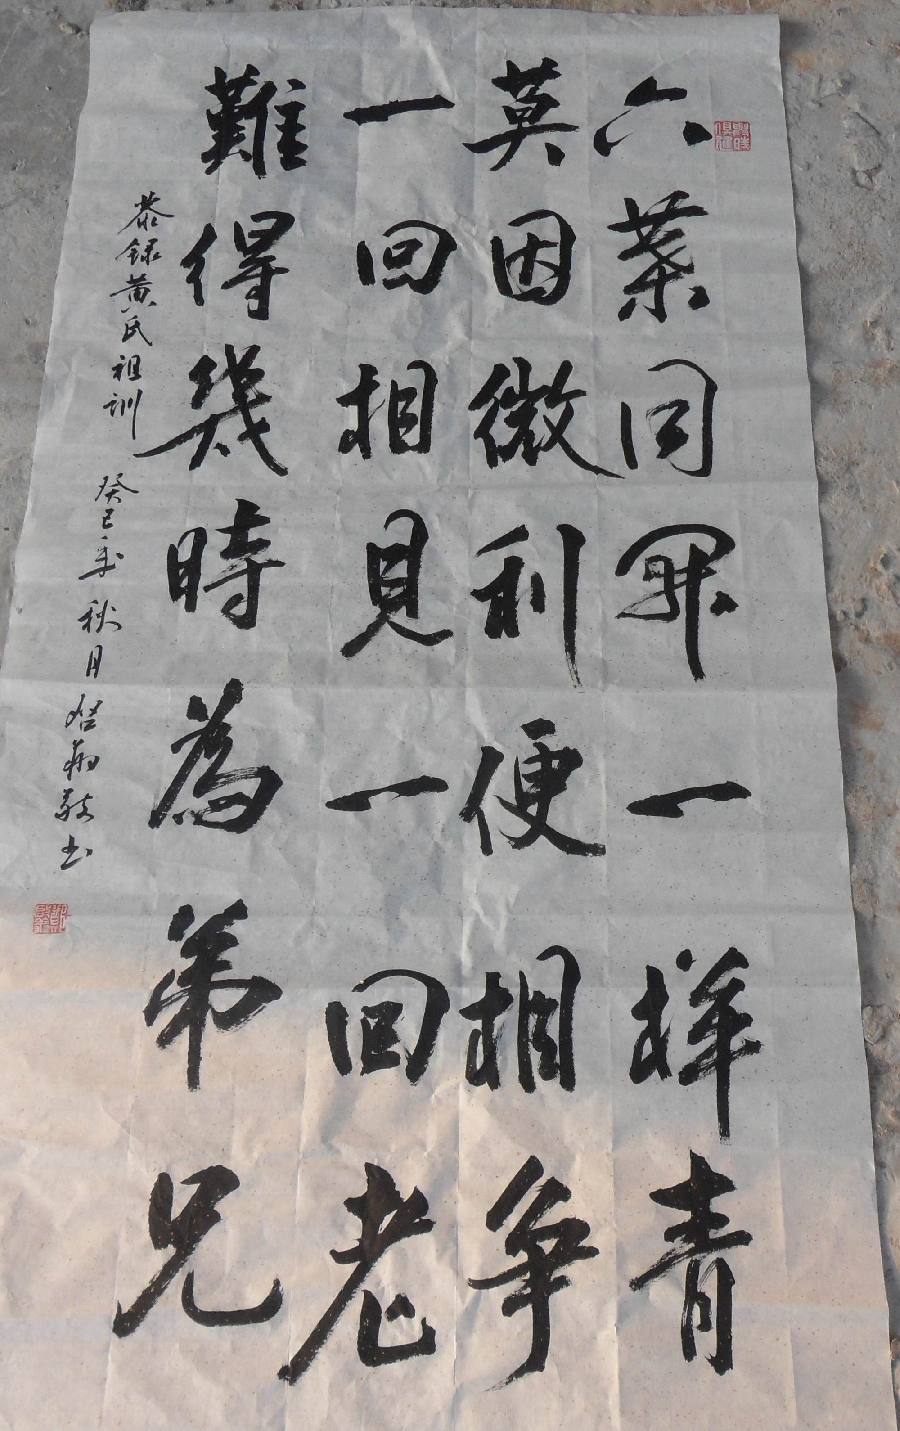 六葉同開一样青
莫因微利便相争
一回相見一回老
難得幾時為弟兄
恭録黄氏祖训 癸巳年 秋月 敬书